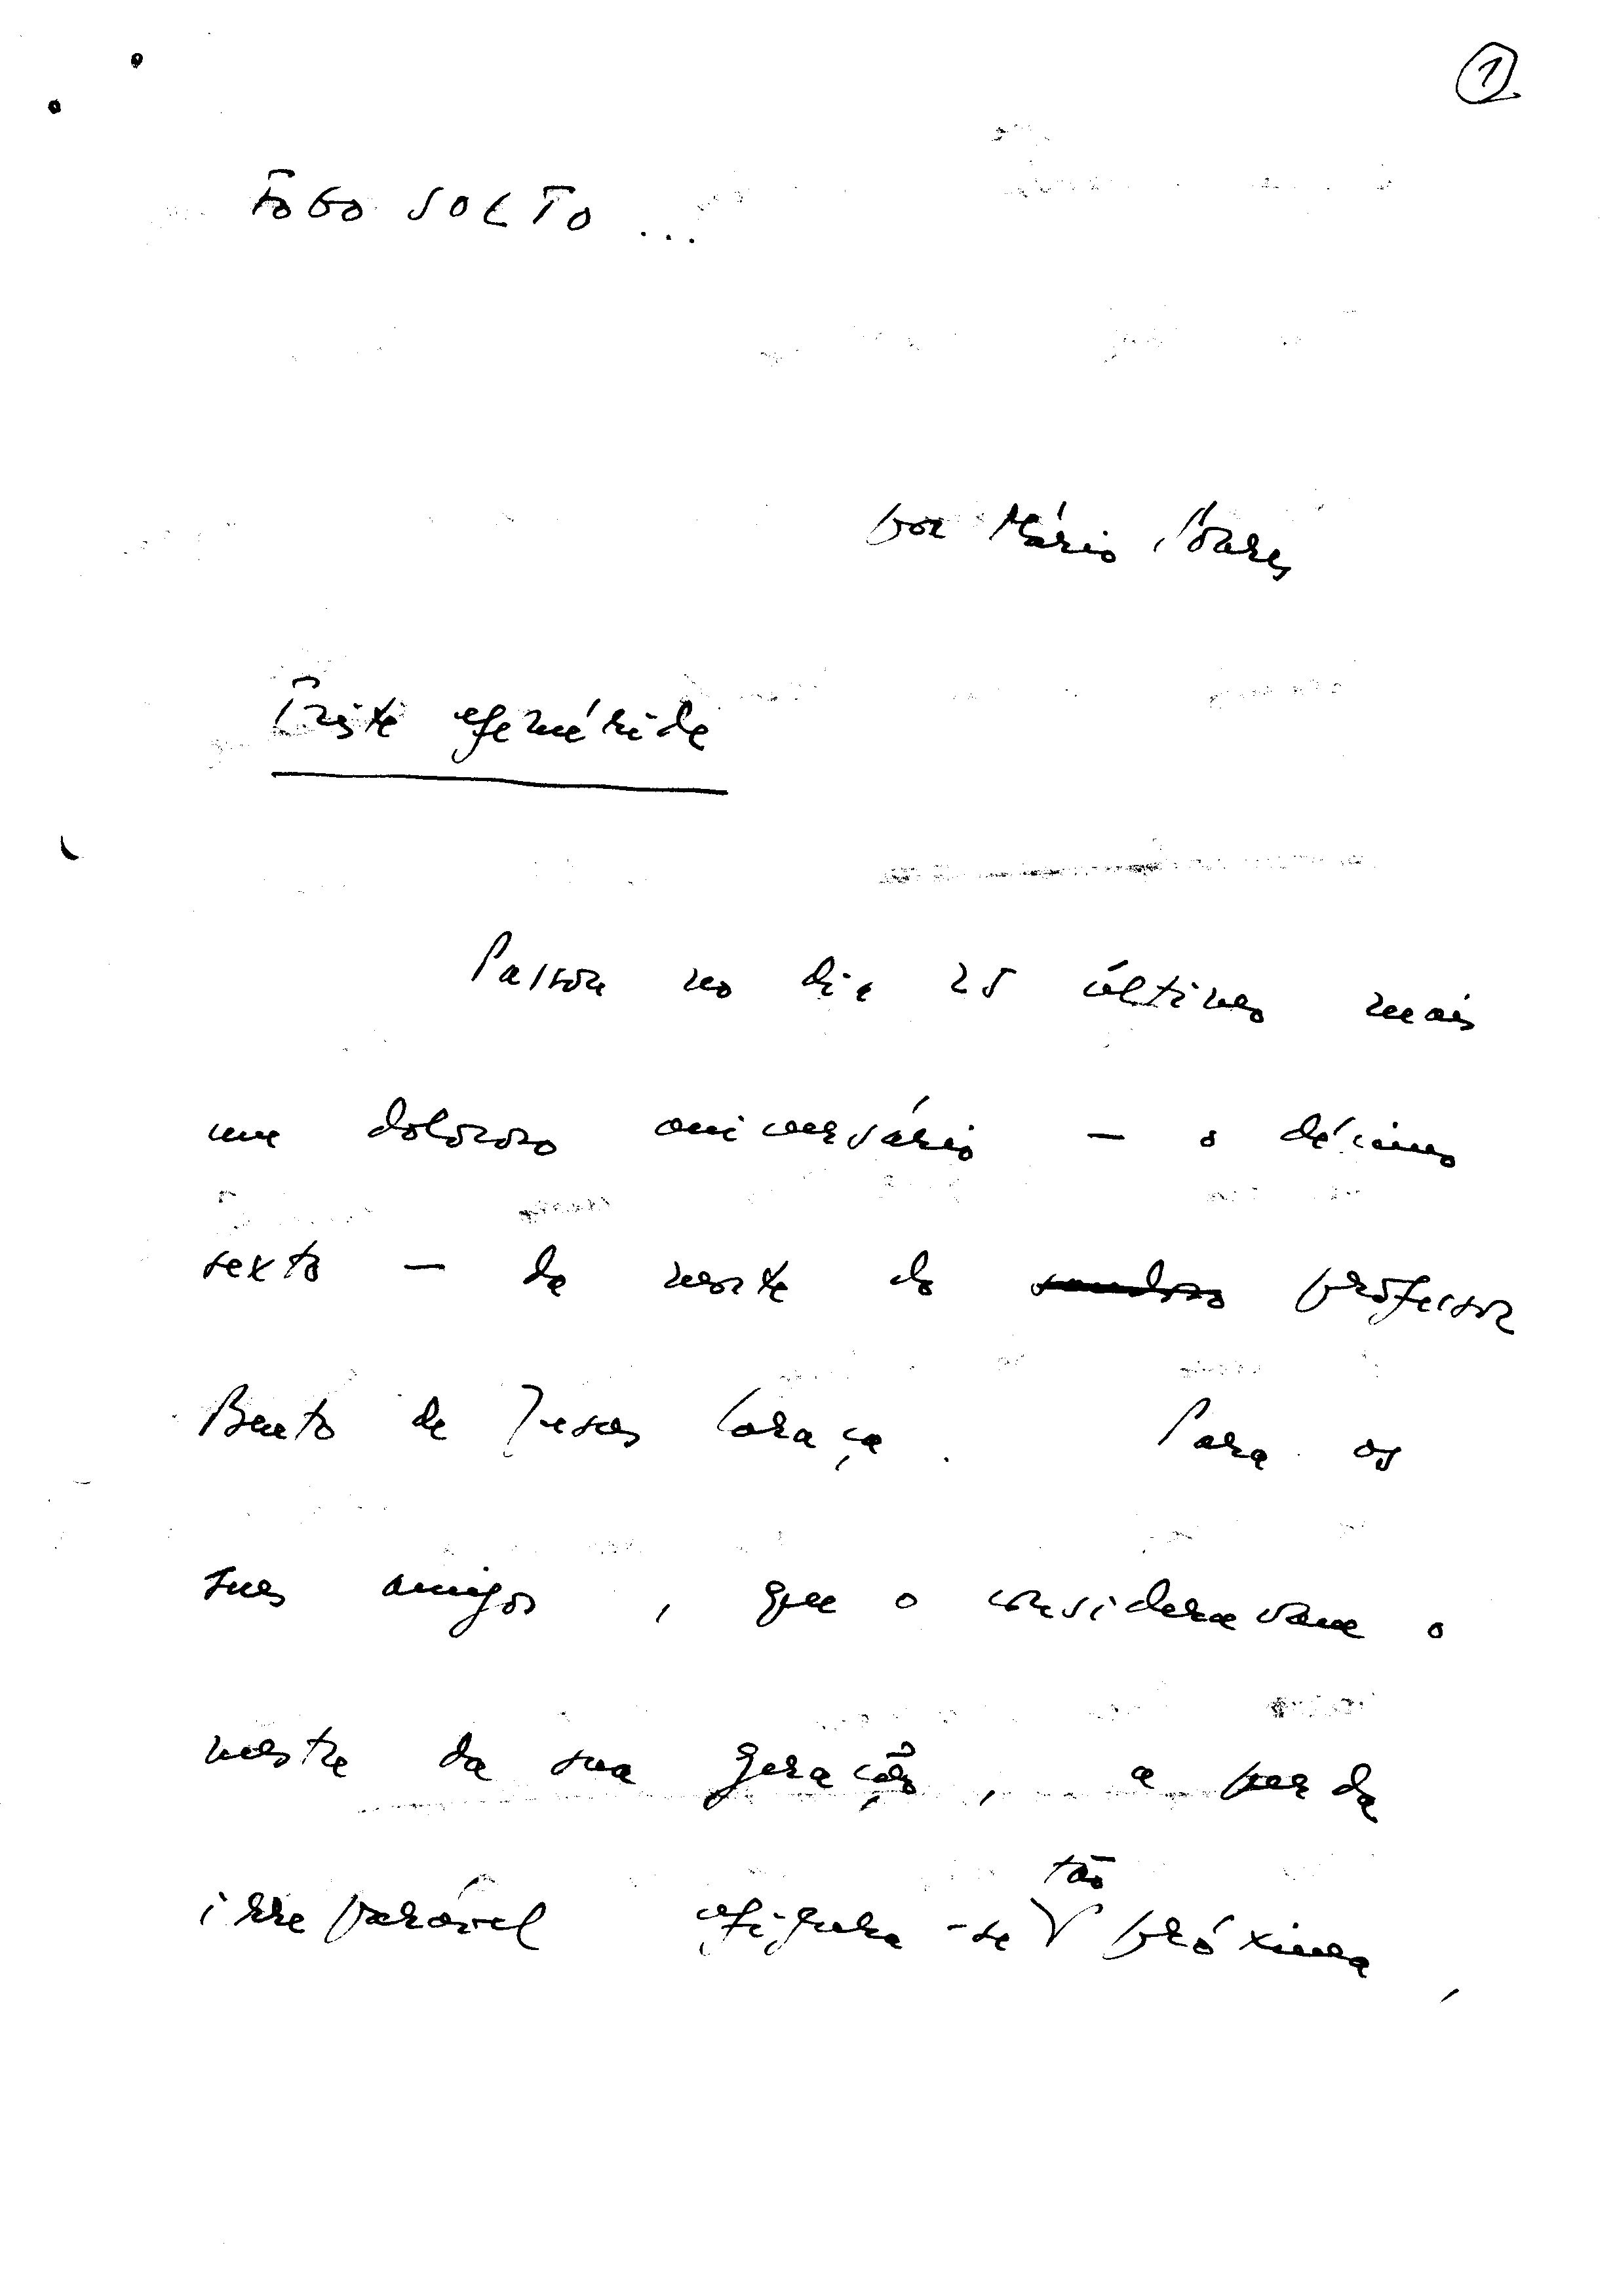 1
FOGO SOLTO ...
por Mário Soares
Triste efeméride
Passou no dia 25 último mais
um doloroso aniversário — o décimo
sexto — da morte do saudoso professor
Bento de Jesus Caraça. Para os
seus amigos, que o consideravam o
mestre da sua geração, a perda
tão
irreparável afigura-se próxima,